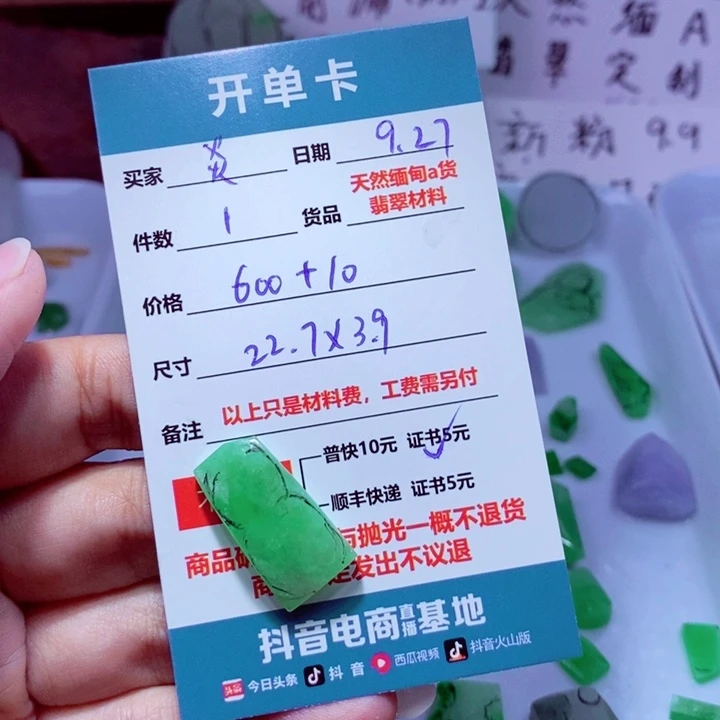 开单卡
买家 日期 9.27
件数 1 货品 天然缅甸a货
翡翠材料
价格 600+10
尺寸 22.7×3.9
备注 以上只是材料费，工费需另付
普快10元 证书5元
顺丰快递 证书5元
商品 抛光一概不退货
发出不议退
抖音电商直播基地
今日头条 抖音 西瓜视频 抖音火山版
然 缅 A
翠 定 制
新 粉 9.9